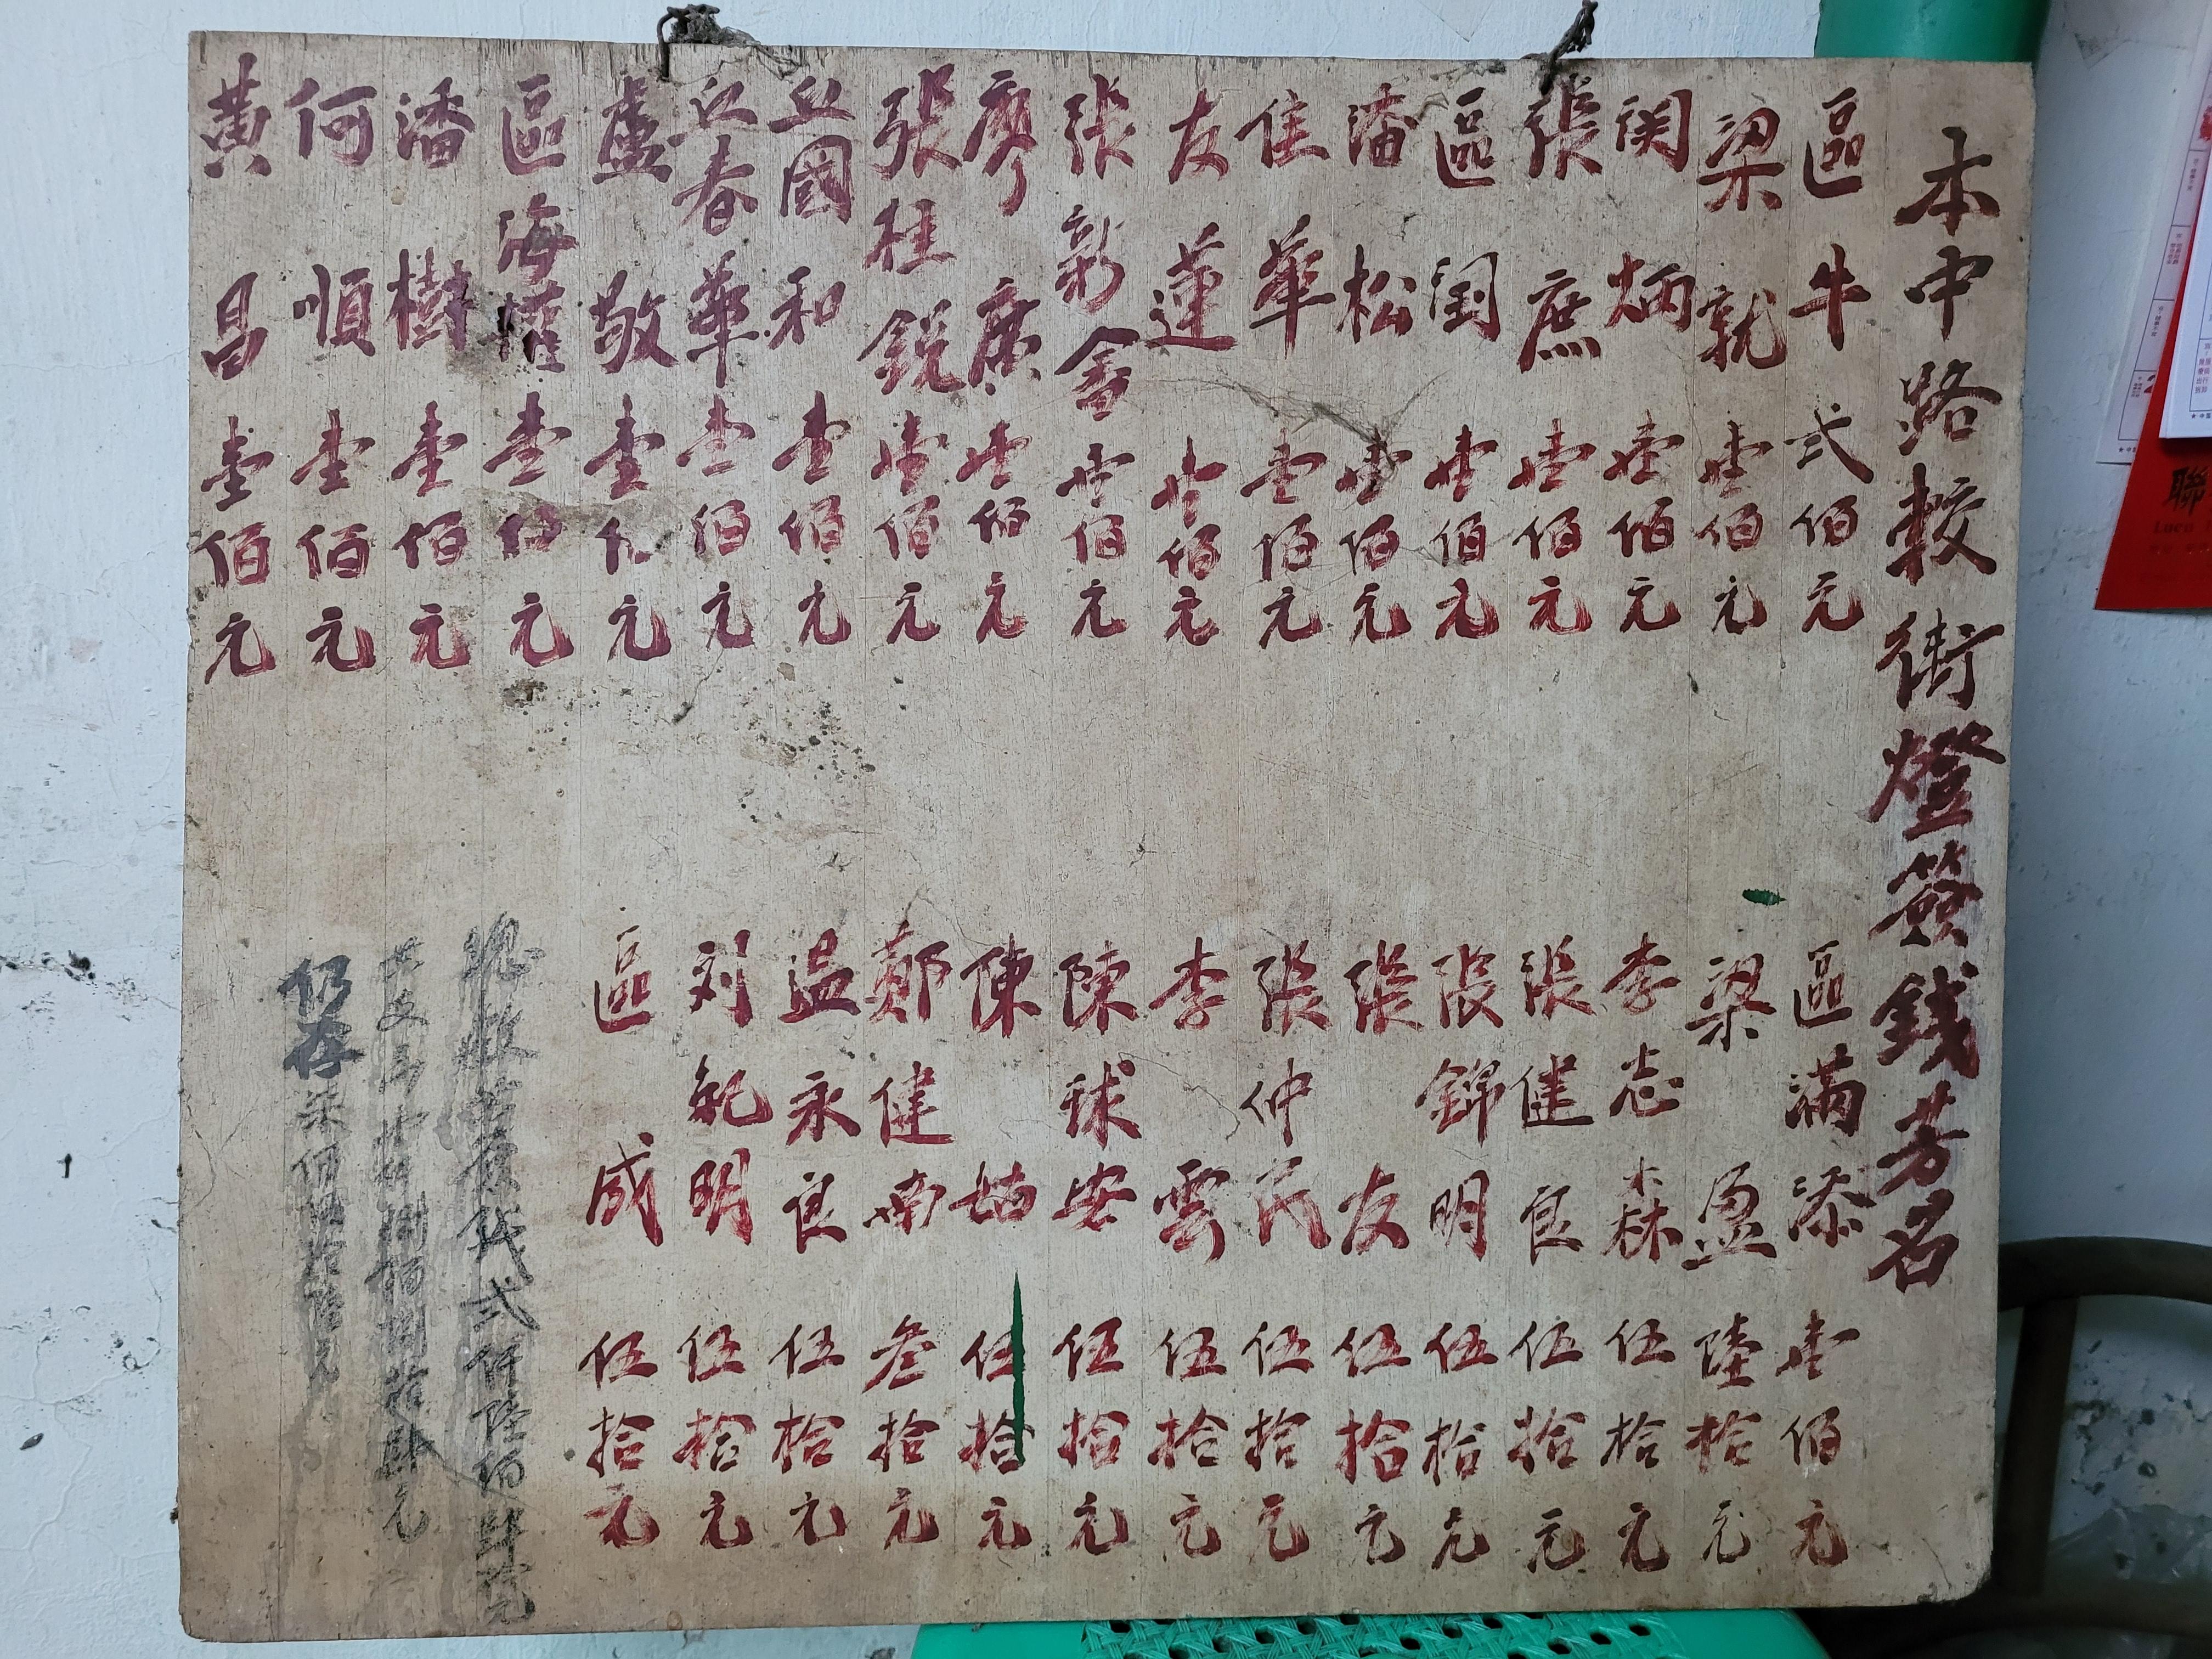 本中路較街燈簽錢芳名
區牛 弍佰元
梁就 壹佰元
関炳 壹佰元
張庶 壹佰元
區潤 壹佰元
潘松 壹佰元
佳華 壹佰元
友蓮 壹佰元
張新金 壹佰元
廖廣 壹佰元
張桂銳 壹佰元
丘國和 壹佰元
丘春華 壹佰元
盧敬 壹佰元
區海權 壹佰元
潘樹 壹佰元
何順 壹佰元
黃昌 壹佰元
區滿添 壹佰元
梁盈 陸拾元
李志森 伍拾元
張健良 伍拾元
張錦明 伍拾元
張友 伍拾元
張仲民 伍拾元
李雲 伍拾元
陳球安 伍拾元
陳姑 伍拾元
鄭健南 叁拾元
温永良 伍拾元
刘乾明 伍拾元
區成 伍拾元
弍仟陸佰
捌佰捌拾肆元
仍存柒佰 拾陸元